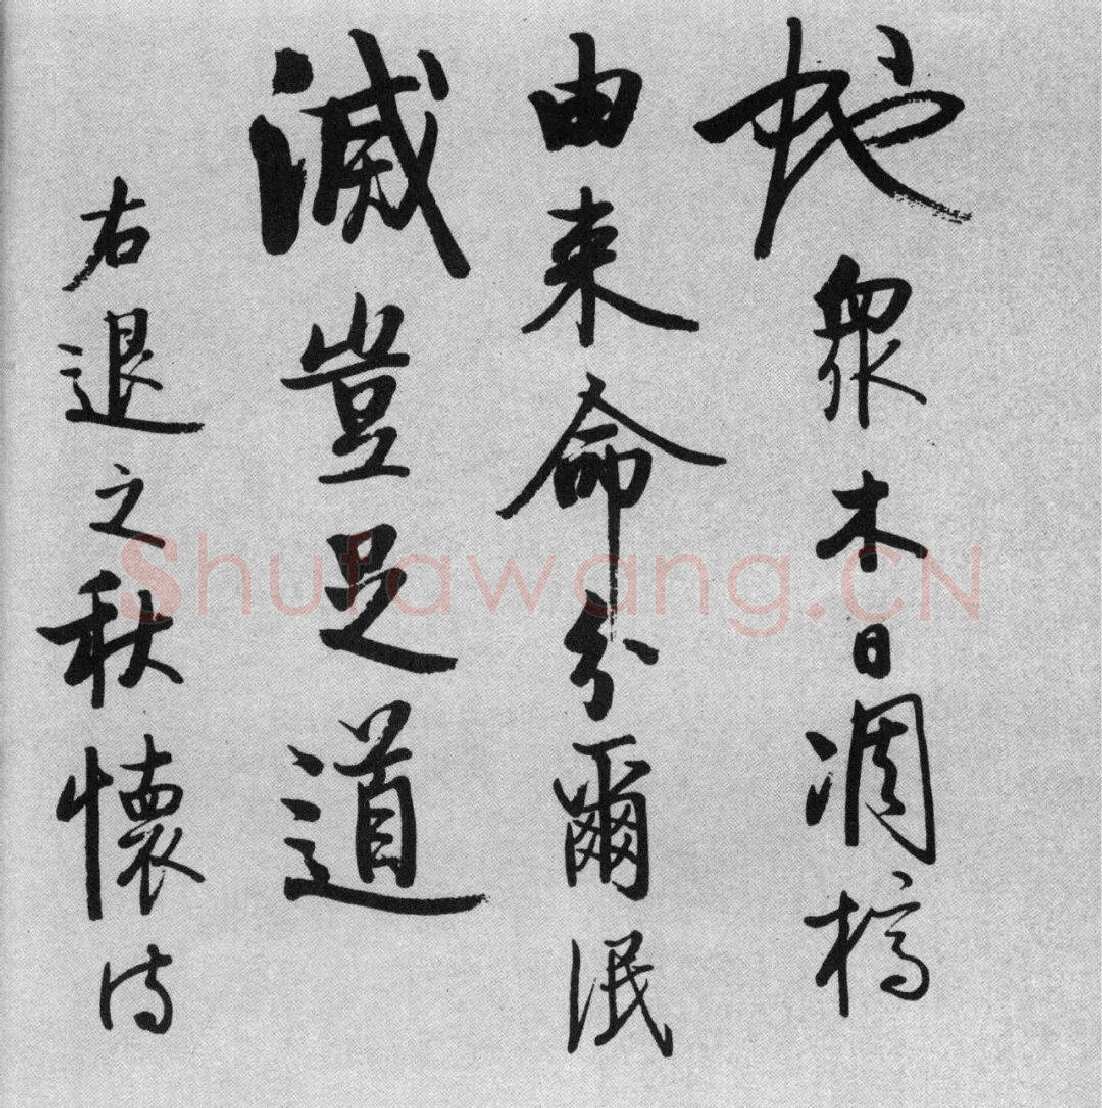 蛇衆木日凋槁
由来命分爾泯
滅豈足道
右退之秋懷詩
Shufawang.CN